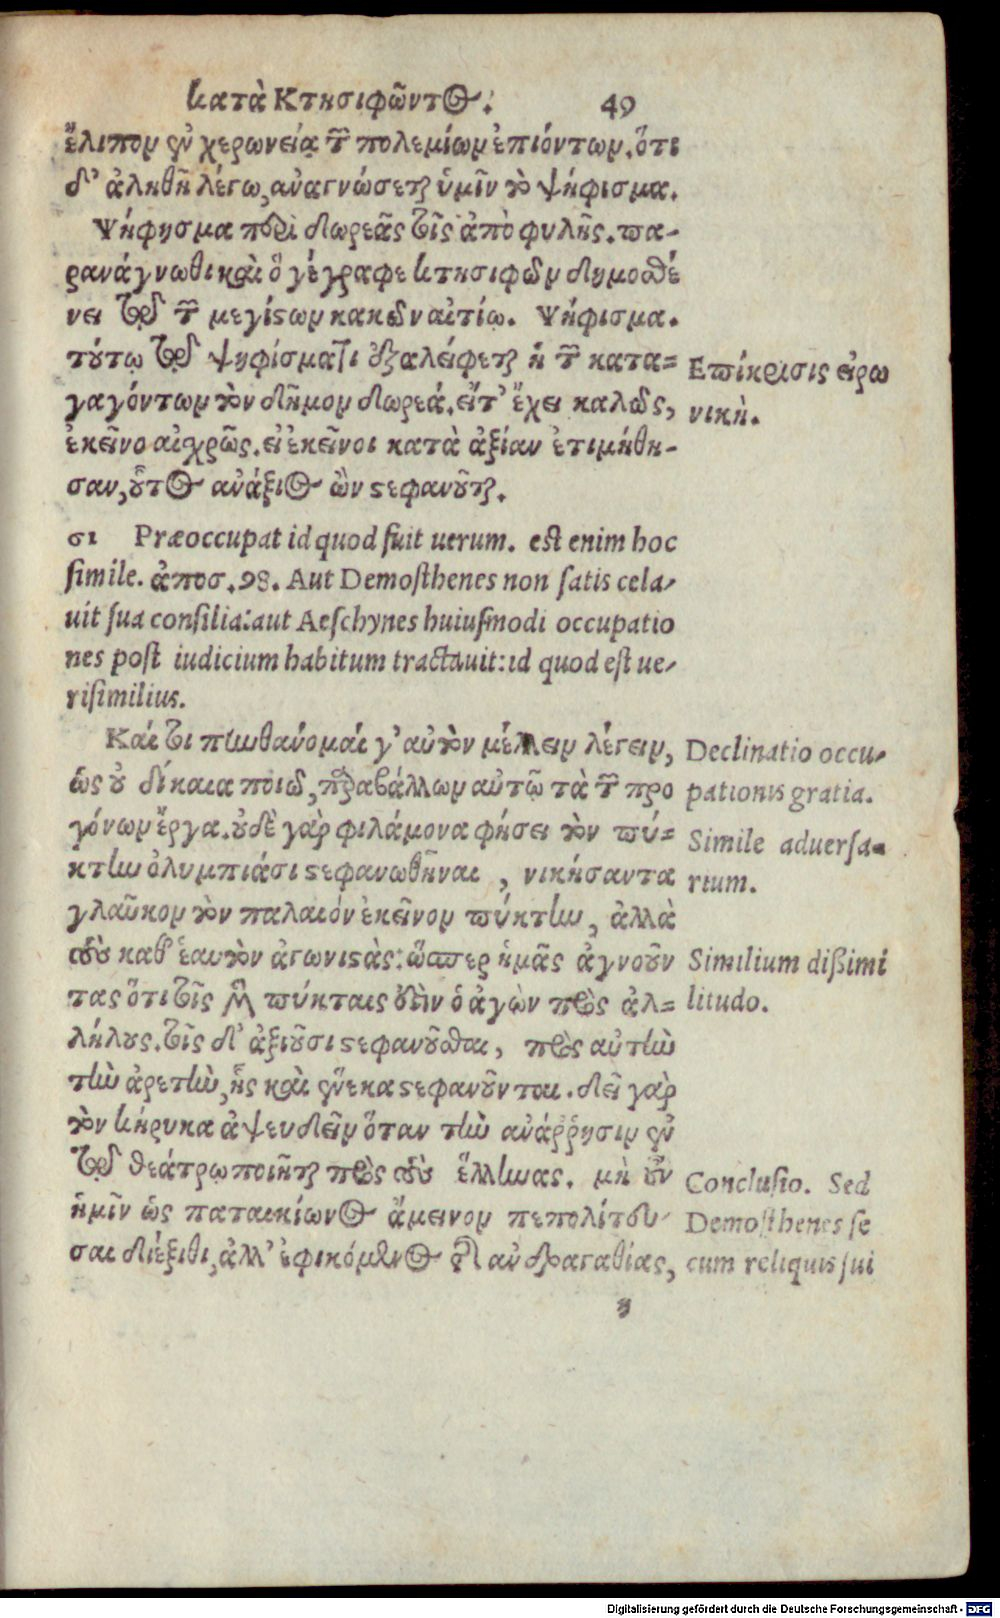 κατὰ Κτησιφῶντος. 49
ἔλιπον ἐν χερωνείᾳ τῶν πολεμίων ἐπιόντων. ὅτι
δ' ἀληθῆ λέγω, ἀναγνώσεται ὑμῖν τὸ ψήφισμα.
Ψήφησμα περὶ δωρεᾶς τοῖς ἀπὸ φυλῆς. πα-
ρανάγνωθι καὶ ὃ γέγραφε κτησιφῶν δημοσθέ
νει τῷ τῶν μεγίστων κακῶν αἰτίῳ. Ψήφισμα.
τούτῳ τῷ ψηφίσματι ἐξαλείφεται ἡ τῶν κατα=
γαγόντων τὸν δῆμον δωρεά. εἴτ' ἔχει καλῶς,
ἐκεῖνο αἰσχρῶς. εἰ ἐκεῖνοι κατὰ ἀξίαν ἐτιμήθη-
σαν, οὗτος ἀνάξιος ὢν στεφανοῦται.
Επίκρισις εἰρω
νικὴ.
σι Præoccupat id quod fuit uerum. est enim hoc
simile. ἀποσ. 98. Aut Demosthenes non satis cela-
uit sua consilia: aut Aeschynes huiusmodi occupatio
nes post iudicium habitum tractauit: id quod est ue-
risimilius.
Καί τοι πυνθάνομαί γ' αὐτὸν μέλλειν λέγειν,
ὡς οὐ δίκαια ποιῶ, παραβάλλων αὐτῷ τὰ τῶν προ
γόνων ἔργα. οὐδὲ γὰρ φιλάμονα φήσει τὸν πύ=
κτην ὀλυμπιάσι στεφανωθῆναι, νικήσαντα
γλαῦκον τὸν παλαιόν ἐκεῖνον πύκτην, ἀλλὰ
τοὺς καθ' ἑαυτὸν ἀγωνιστὰς: ὥσπερ ἡμᾶς ἀγνοοῦν
τας ὅτι τοῖς μὲν πύκταις ἐστὶν ὁ ἀγὼν πρὸς ἀλ=
λήλους. τοῖς δ' ἀξιοῦσι στεφανοῦσθαι, πρὸς αὐτὴν
τὴν ἀρετὴν, ἧς καὶ ἕνεκα στεφανοῦνται. δεῖ γὰρ
τὸν κήρυκα ἀψευδεῖν ὅταν τὴν ἀνάῤῥησιν ἐν
τῷ θεάτρῳ ποιῆται πρὸς τοὺς ἕλληνας. μὴ οὖν
ἡμῖν ὡς παταικίωνος ἄμεινον πεπολίτευ-
σαι διέξιθι, ἀλλ' ἐφικόμενος τῆς ἀνδραγαθίας,
Declinatio occu-
pationis gratia.
Simile aduersa=
rium.
Similium dißimi
litudo.
Conclusio. Sed
Demosthenes se
cum reliquis sui